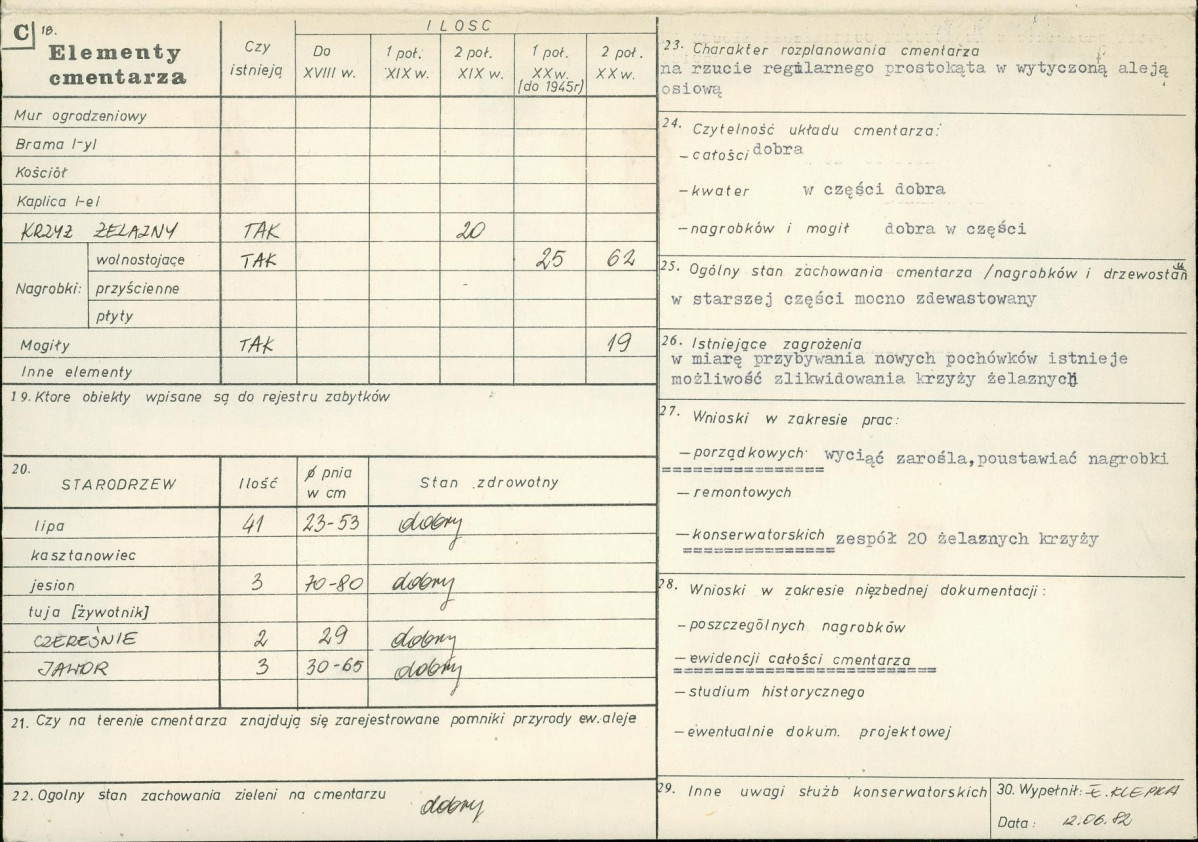 C 18.
Elementy cmentarza
Czy istnieją
ILOSC
Do XVIII w.
1 poł. XIX w.
2 poł. XIX w.
1 poł. XX w. (do 1945r)
2 poł. XX w.
Mur ogrodzeniowy
Brama I-yl
Kościół
Kaplica I-el
KRZYŻ ŻELAZNY TAK 20
Nagrobki: wolnostojące TAK 25 62
przyścienne
płyty
Mogiły TAK 19
Inne elementy
19. Ktore obiekty wpisane są do rejestru zabytków
20. STARODRZEW Ilość ∅ pnia w cm Stan zdrowotny
lipa 41 23-53 dobry
kasztanowiec
jesion 3 70-80 dobry
tuja [żywotnik]
CZEREŚNIE 2 29 dobry
JAWOR 3 30-65 dobry
21. Czy na terenie cmentarza znajdują się zarejestrowane pomniki przyrody ew. aleje
22. Ogolny stan zachowania zieleni na cmentarzu dobry
23. Charakter rozplanowania cmentarza
na rzucie regularnego prostokąta w wytyczoną aleją
osiową
24. Czytelność układu cmentarza:
- całości dobra
- kwater w części dobra
- nagrobków i mogił dobra w części
25. Ogólny stan zachowania cmentarza /nagrobków i drzewostanu
w starszej części mocno zdewastowany
26. Istniejące zagrożenia
w miarę przybywania nowych pochówków istnieje
możliwość zlikwidowania krzyży żelaznych
27. Wnioski w zakresie prac:
- porządkowych wyciąć zarośla,poustawiać nagrobki
- remontowych
- konserwatorskich zespół 20 żelaznych krzyży
28. Wnioski w zakresie niezbednej dokumentacji:
- poszczególnych nagrobków
- ewidencji całości cmentarza
- studium historycznego
- ewentualnie dokum. projektowej
29. Inne uwagi służb konserwatorskich
30. Wypełnił: E. KLEPKA
Data: 12.06.82